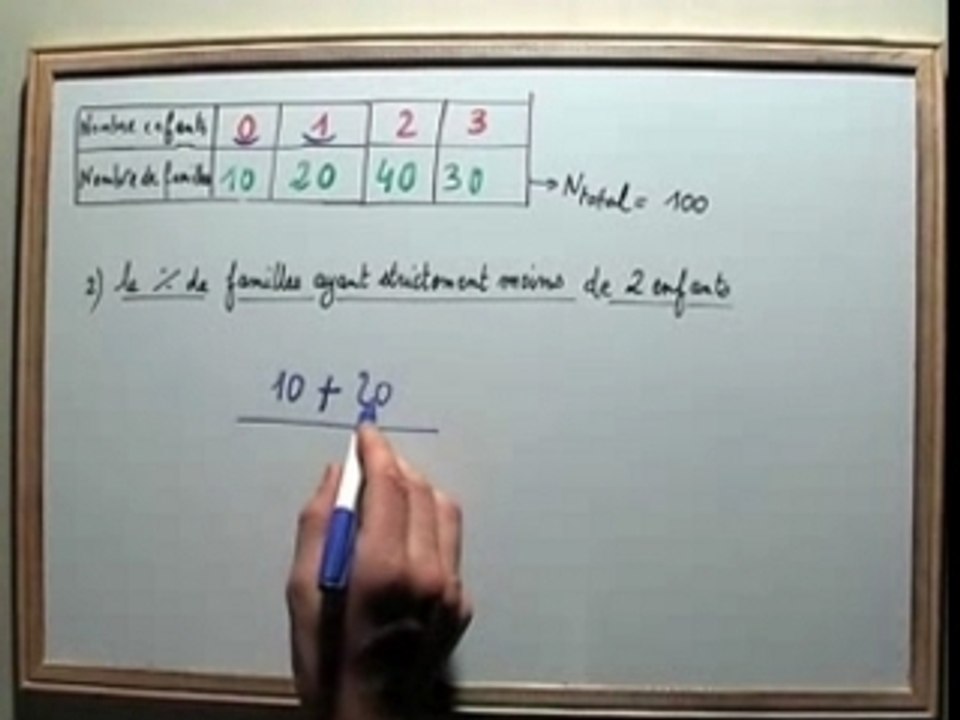 Nombre enfants 0 1 2 3
Nombre de familles 10 20 40 30 → Ntotal = 100
2) le % de familles ayant strictement moins de 2 enfants
10 + 20